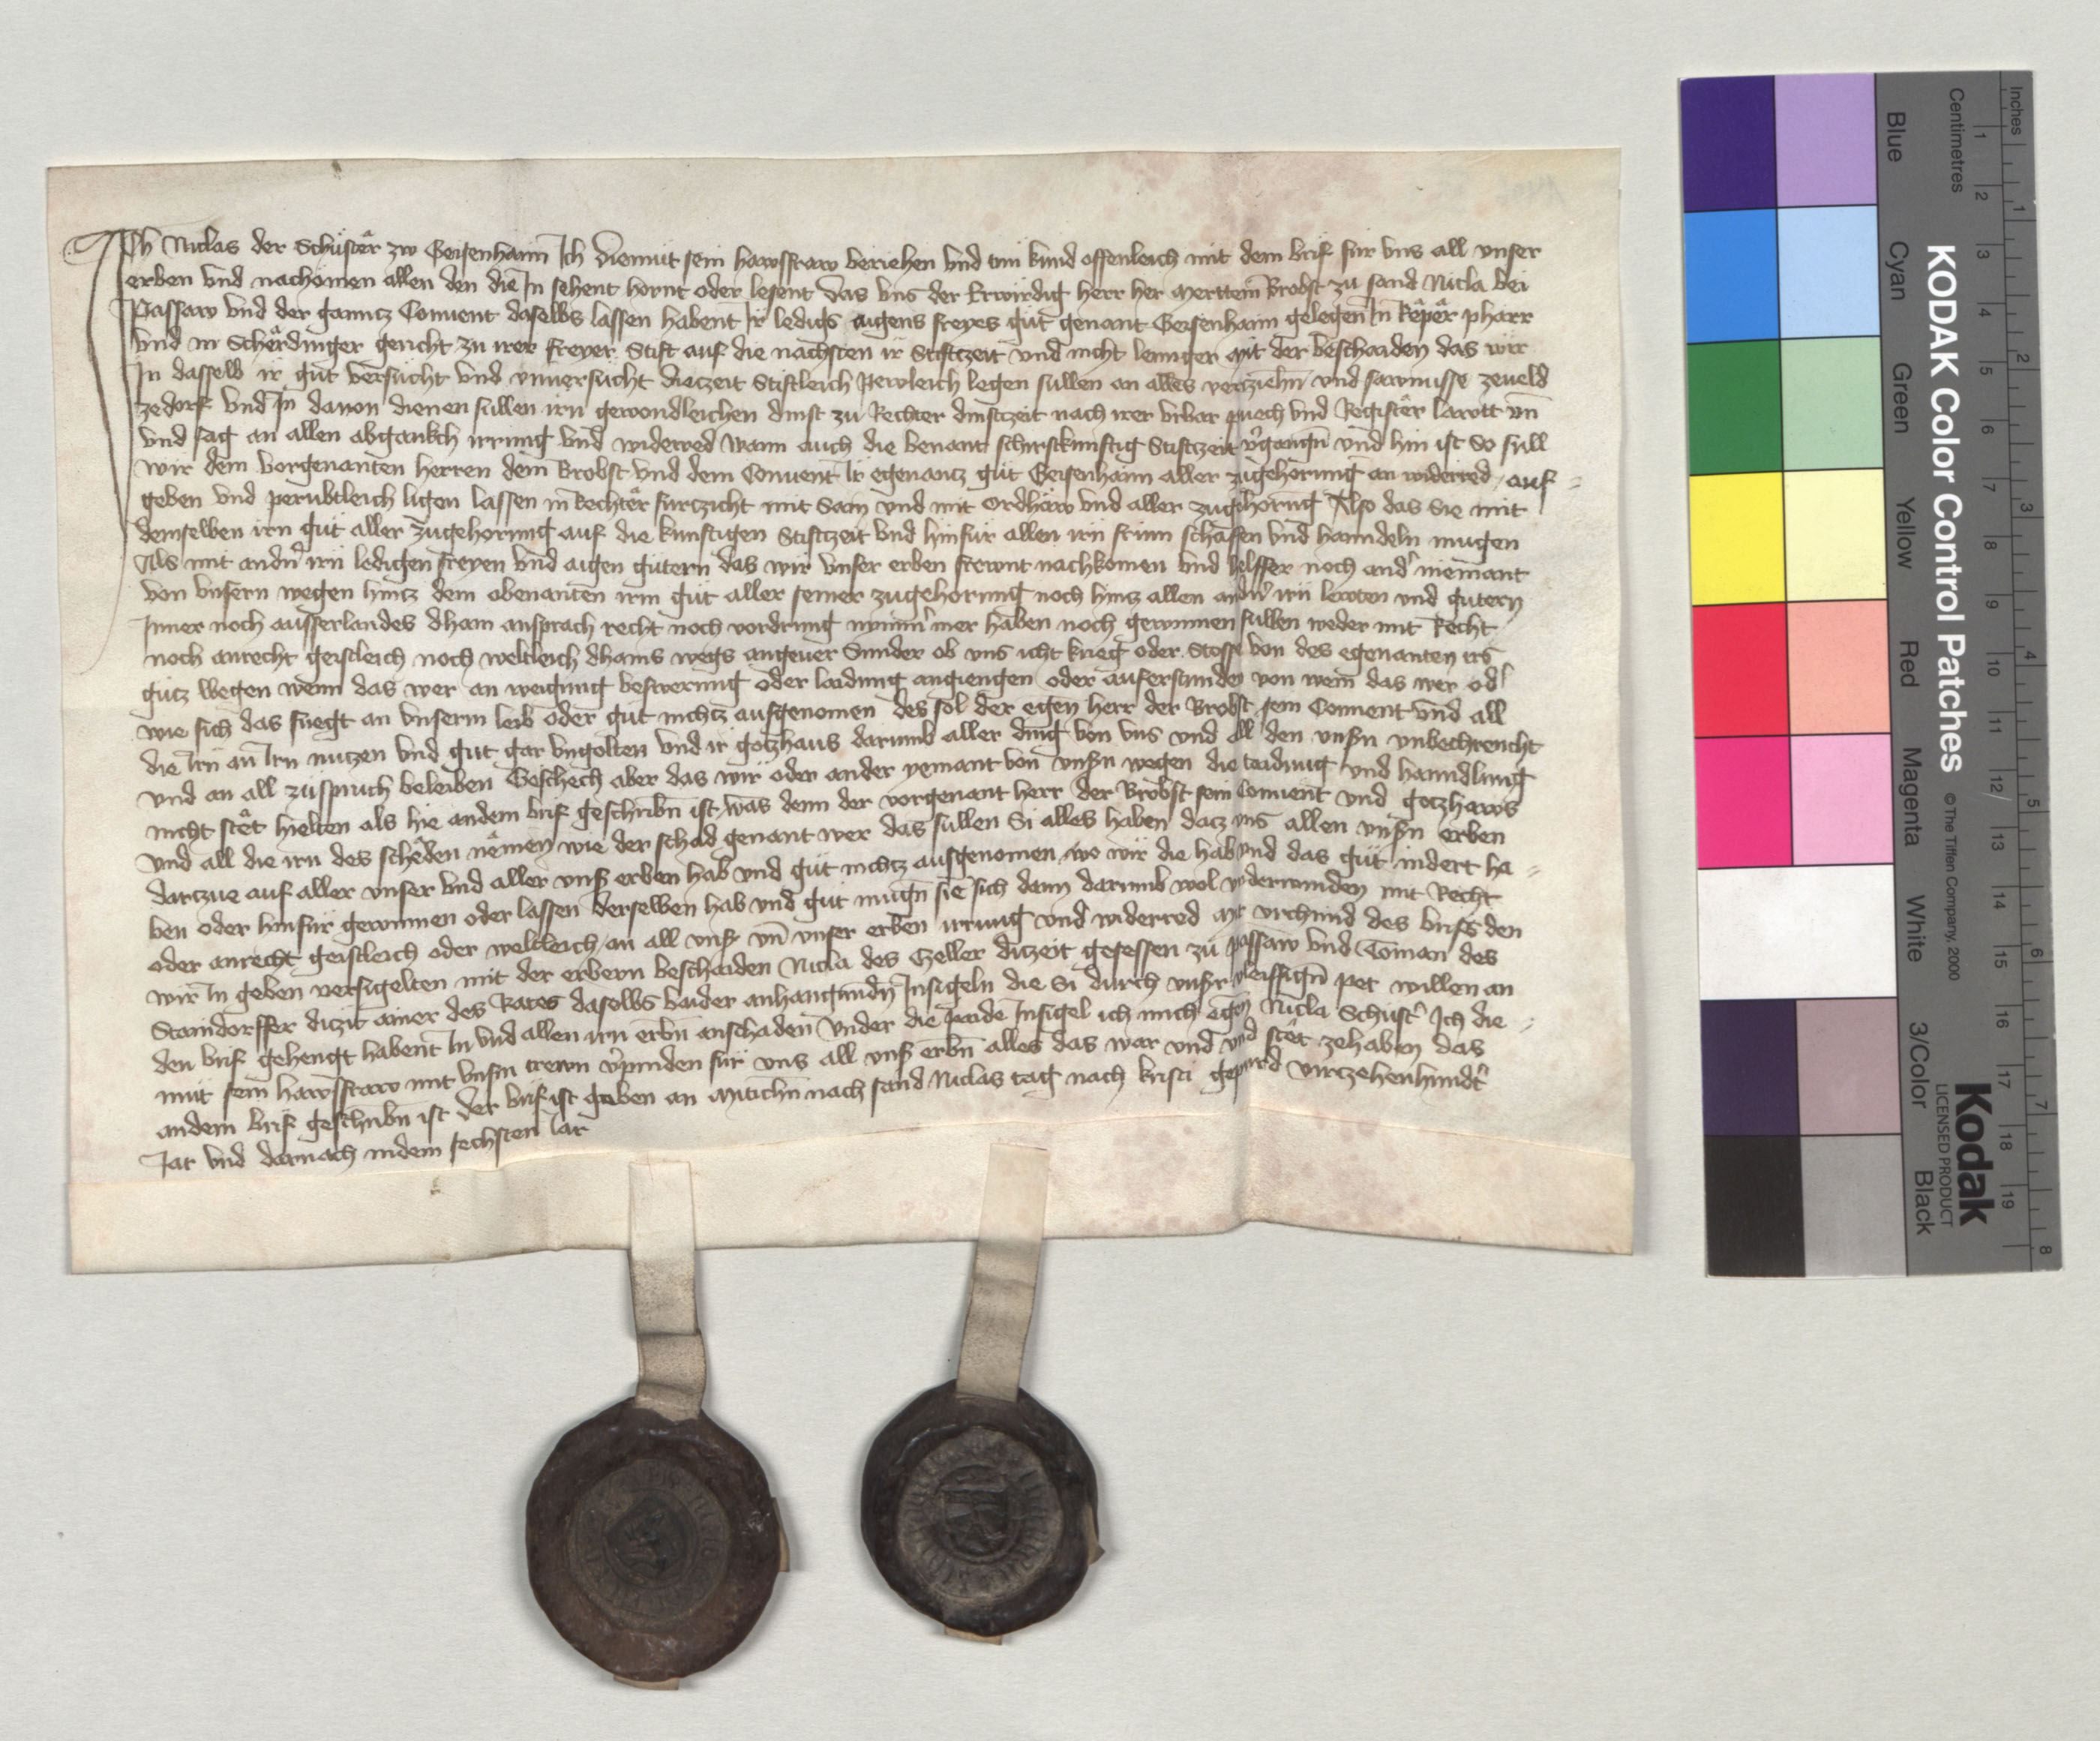 Ich Niclas der Schüster zw Geisenhaim Ich Diemüt sein hawsfraw veriehen vnd tün kund offenleich mit dem brif für vns all vnser
erben vnd nachomen allen den die In sehent hornt oder lesent das vns der Erwirdig herr her Merttein Brobst zu sand Nicla bei
Passaw vnd der ganntz Conuent daselbs lassen habent ir ledigs aigens freyes güt genant Geisenhaim gelegen In Keper pharr
vnd in Scherdinger gericht zu irer freyer Stift auf die nachsten ir Stiftzeit vnd nicht lennger Mit der beschaiden das wir
In dasselb ir güt versücht vnd vnuersücht dieczeit Stiftleich pewleich legen sullen an alles verziehn vnd sawmusse zeueld
zedorf vnd In dauon dienen sullen irn gewondleichen dinst zu Rechter dinstzeit nach irer vrbar puech vnd Register lawtt vn
vnd sag an allen abgankch irrung vnd widerred Wann auch die benant schirstkunftig Stiftzeit vergangn vnd hin ist So sull
wir dem vorgenanten herren dem Brobst vnd dem Conuent Ir egenantz güt Geisenhaim aller zugehorung an widerred auf=
geben vnd perubtleich ligen lassen in Rechter furtzicht mit Sam vnd mit Ordhaw vnd aller zugehorung Also das Sie mit
demselben irn güt aller zugehorung auf die kunftigen Stiftzeit vnd hinfür allen irn frumm schaffen vnd hanndeln mugen
Als mit andern irn ledigen freyen vnd aigen gütern das wir vnser erben frewnt nachkomen vnd helffer noch ander niemant
von vnsern wegen hintz dem obenanten irm güt aller seiner zugehorung noch hintz allen andern irn lewten vnd gutern
Inner noch ausserlandes dhain ansprach recht noch vordrung nymmer mer haben noch gewinnen sullen weder mit Recht
noch anrecht geistleich noch weltleich dhains wegs angeuer Sunder ob vns icht krieg oder Stoss von des egenanten irs
gütz wegen wenn das wer an weigung beswerung oder laidung angiengen oder auferstunden von wem das wer oder
wie sich das füegt an vnserm leib oder güt nichtz ausgenomen des sol der egen herr der Brobst sein Conuent vnd all
die irn an irn nutzen vnd güt gar vngolten vnd ir gotzhaus darumb aller ding von vns vnd all den vnsern vnbechrencht
vnd an all züspruch beleiben Geschech aber das wir oder ander yemant von vnsern wegen die taiding vnd hanndlung
nicht stet hielten als hie andem brif geschribn ist was denn der vorgenant herr der Brobst sein Conuent vnd gotzhaws
vnd all die irn des scheden nemen wie der schad genant wer das sullen Si alles haben datz vns allen vnsern erben
dartzue auf aller vnser vnd aller vnser erben hab vnd güt nichtz ausgenomen wo wir die hab vnd das güt indert ha=
ben oder hinfür gewinnen oder lassen derselben hab vnd güt mugn sie sich dann darumb wol vnderwinden mit Recht
oder anrecht geistleich oder weltleich an all vnser vn vnser erben irrung vnd widerred Mit vrchund des brifs den
wir In geben versigelten mit der erbern beschaiden Nicla des Czeller diczeit gesessen zu passaw vnd Toman des
Staindorffer diczit ainer des Rates daselbs baider anhangunden Insigeln die Si durch vnser vleissign pet willen an
den brif gehengt habent In vnd allen irn erbn anschaden Vnder die paide Insigel ich mich egen Nicla Schüster Ich die=
müt sein hawsfraw mit vnsern trewn verpinden für vns all vnser erbn alles das war vnd vnd stet zehaben das
andem brif geschribn ist Der brif ist geben an Mitichn nach sand Niclas tag nach kristi gepurd virczehenhundert
Jar vnd darnach indem sechsten Iar
KODAK Color Control Patches
© The Tiffen Company, 2000
Kodak
LICENSED PRODUCT
Inches 1 2 3 4 5 6 7 8
Centimetres 1 2 3 4 5 6 7 8 9 10 11 12 13 14 15 16 17 18 19
Blue
Cyan
Green
Yellow
Red
Magenta
White
3/Color
Black